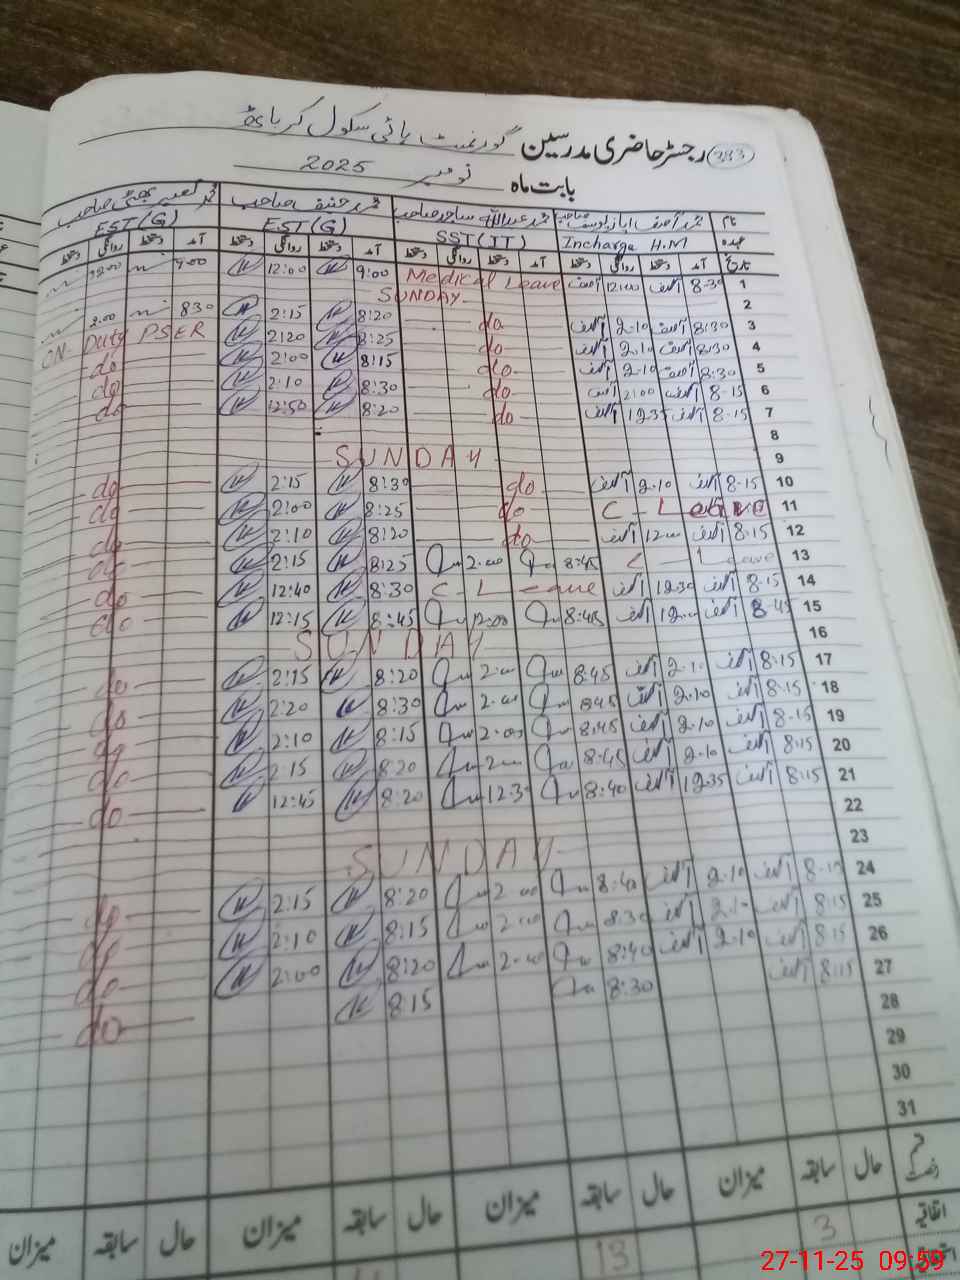 رجسٹر حاضری مدرسین گورنمنٹ ہائی سکول 393
بابت ماہ نومبر 2025
نام محمد آصف صاحب محمد عبداللہ ساجد صاحب محمد حنیف صاحب صاحب
عہدہ Incharge H.M SST (IT) EST (G) EST (G)
تاریخ آمد دستخط روانگی دستخط آمد دستخط روانگی دستخط آمد دستخط روانگی دستخط آمد دستخط روانگی دستخط
1 8-30 آصف 12:00 آصف Medical Leave 9:00 12:00 9:00 12:00
2 SUNDAY
3 8:30 آصف 2.10 آصف do 8:20 2:15 830 2.00
4 8:30 آصف 2.10 آصف do 8:25 2:20 ON- Duty PSER
5 8:30 آصف 2.10 آصف do 8:15 2:00 do
6 8-15 آصف 2:00 آصف do 8:30 2:10 do
7 8-15 آصف 12:35 آصف do 8:20 12:50 do
8
9 SUNDAY
10 8-15 آصف 2.10 آصف do 8:30 2:15 do
11 C - Leave do 8:25 2:00 do
12 8.15 آصف 12:00 آصف do 8:20 2:10 do
13 C - Leave 8:45 2:00 8:25 2:15 do
14 8-15 آصف 12:30 آصف C - Leave 8:30 12:40 do
15 8-45 آصف 12:00 آصف 8:45 12:00 8:45 12:15 do
16 SUNDAY
17 8.15 آصف 2.10 آصف 8:45 2:00 8:20 2:15 do
18 8.15 آصف 2.10 آصف 8:45 2:00 8:30 2:20 do
19 8-15 آصف 2.10 آصف 8:45 2:00 8:15 2:10 do
20 8.15 آصف 2.10 آصف 8:45 2:00 8:20 2:15 do
21 8.15 آصف 12:35 آصف 8:40 12:3 8:20 12:45 do
22
23 SUNDAY
24 8-15 آصف 2.10 آصف 8:40 2:00 8:20 2:15 do
25 8.15 آصف 2.10 آصف 8:30 2:00 8:15 2:10 do
26 8.15 آصف 2.10 آصف 8:40 2:00 8:20 2:00 do
27 8.15 آصف 8:30 8:15 do
28
29
30
31
قسم رخصت حال سابقہ میزان حال سابقہ میزان حال سابقہ میزان حال سابقہ میزان
اتفاقیہ 3
13
27-11-25 09:59